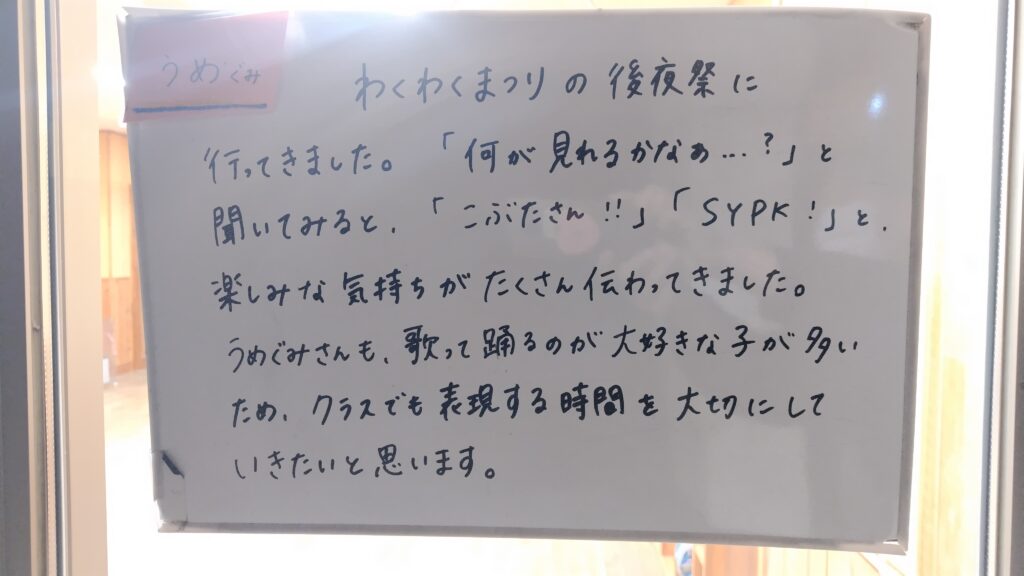 うめぐみ
わくわくまつりの後夜祭に
行ってきました。「何が見れるかなぁ…?」と
聞いてみると、「こぶたさん!!」「SYPK!」と、
楽しみな気持ちがたくさん伝わってきました。
うめぐみさんも、歌って踊るのが大好きな子が多い
ため、クラスでも表現する時間を大切にして
いきたいと思います。